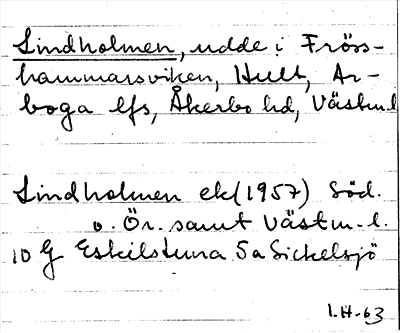 Lindholmen, udde i Frös-
hammarsviken, Hult, Ar-
boga lfs, Åkerbo hd, Västm.l
Lindholmen ek (1957) Söd.
o. Ör. samt Västm. l.
10 G Eskilstuna 5a Sickelsjö
I.H-63